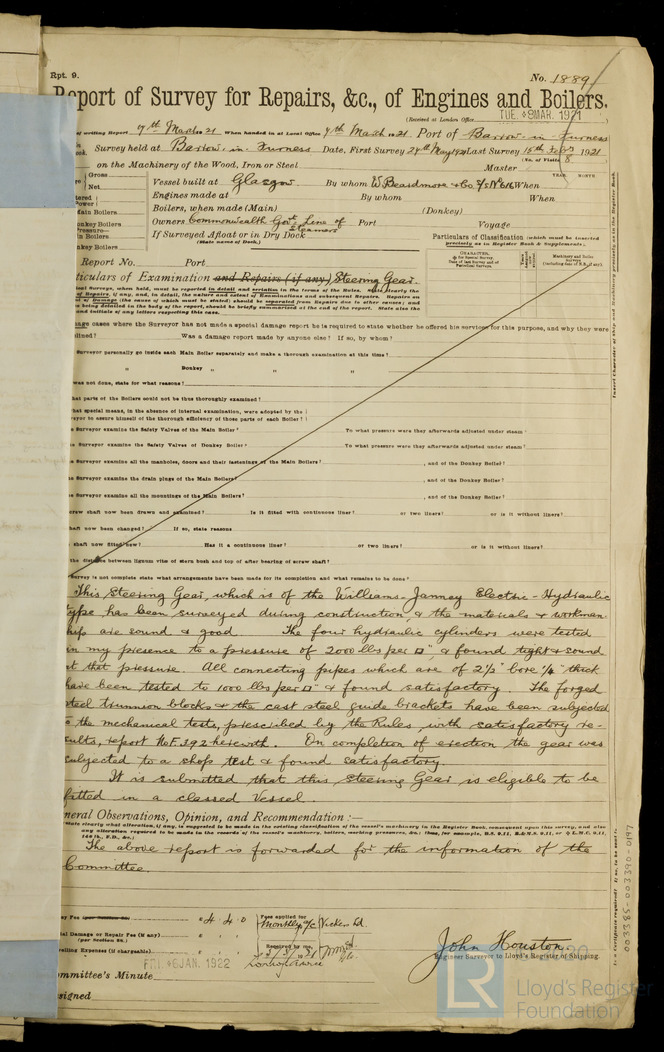 Rpt. 9.
No. 1889
Report of Survey for Repairs, &c., of Engines and Boilers.
(Received at London Office TUE. 8 MAR. 1921
of writing Report 7th March 21 When handed in at Local Office 7th March 1921 Port of Barrow-in-Furness
Survey held at Barrow-in-Furness Date, First Survey 27th May 1920 Last Survey 15th Feb 1921
(No. of Visits 8
on the Machinery of the Wood, Iron or Steel Master
Gross
Net
Vessel built at Glasgow By whom W. Beardmore & Co. When
YEAR. MONTH
Engines made at By whom When
Boilers, when made (Main) (Donkey)
Main Boilers
Owners Commonwealth Govt. Line of Steamers Port Voyage
Donkey Boilers
If Surveyed Afloat or in Dry Dock
(State name of Dock.)
Particulars of Classification (which must be inserted
precisely as in Register Book & Supplements).
Report No. Port
ticulars of Examination and Repairs (if any) Steering Gear.
age cases where the Surveyor has not made a special damage report he is required to state whether he offered his services for this purpose, and why they were
lined? Was a damage report made by anyone else? If so, by whom?
Surveyor personally go inside each Main Boiler separately and make a thorough examination at this time?
" Donkey " " "
was not done, state for what reasons?
hat parts of the Boilers could not be thus thoroughly examined?
hat special means, in the absence of internal examination, were adopted by the
veyor to assure himself of the thorough efficiency of those parts of each Boiler?
e Surveyor examine the Safety Valves of the Main Boiler? To what pressure were they afterwards adjusted under steam?
e Surveyor examine the Safety Valves of Donkey Boiler? To what pressure were they afterwards adjusted under steam?
e Surveyor examine all the manholes, doors and their fastenings of the Main Boilers? , and of the Donkey Boiler?
e Surveyor examine the drain plugs of the Main Boilers? , and of the Donkey Boiler?
e Surveyor examine all the mountings of the Main Boilers? , and of the Donkey Boiler?
crew shaft now been drawn and examined? Is it fitted with continuous liner? or two liners? or is it without liners?
haft now been changed? If so, state reasons
shaft now fitted new? Has it a continuous liner? or two liners? or is it without liners?
the distance between lignum vitæ of stern bush and top of after bearing of screw shaft?
Survey is not complete state what arrangements have been made for its completion and what remains to be done?
This Steering Gear, which is of the Williams-Janney Electric-Hydraulic
type has been surveyed during construction, & the materials & workman-
ship are sound & good. The four hydraulic cylinders were tested
in my presence to a pressure of 2000 lbs per □", & found tight & sound
at that pressure. All connecting pipes which are of 2½" bore ¼" thick
have been tested to 1000 lbs per □" & found satisfactory. The forged
steel trunnion blocks & the cast steel guide brackets have been subjected
to the mechanical tests, prescribed by the Rules, with satisfactory re-
sults, report No F.392 herewith. On completion of erection the gear was
subjected to a shop test & found satisfactory.
It is submitted that this Steering Gear is eligible to be
fitted in a classed Vessel.
neral Observations, Opinion, and Recommendation:—
The above report is forwarded for the information of the
Committee.
4 4 0
Fees applied for
Monthly a/c Vickers Ld.
al Damage or Repair Fee (if any)
(per Section 29.)
Received by me,
velling Expenses (if chargeable)
John Houston.
Engineer Surveyor to Lloyd's Register of Shipping.
FRI. 6 JAN. 1922
ommittee's Minute
signed
003385-003390-0197
LR
Lloyd's Register
Foundation